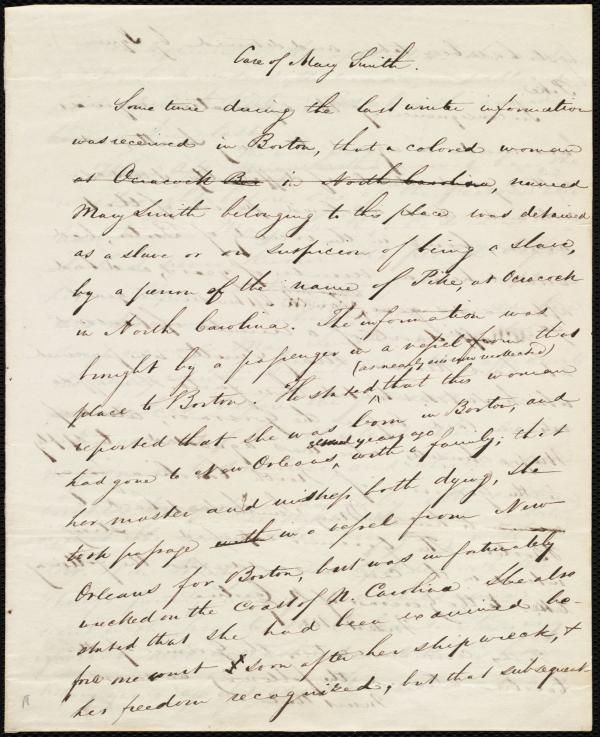 Case of Mary Smith.
Some time during the last winter information
was received in Boston, that a colored woman
at Ocracock Bar in North Carolina, named
Mary Smith belonging to this place was detained
as a slave or on suspicion of being a slave,
by a person of the name of Pike, at Ocracock
in North Carolina. The information was
brought by a passenger in a vessel from that
(as nearly as is now recollected)
place to Boston. He stated that this woman
reported that she was born in Boston, and
several years ago
had gone to New Orleans with a family; that
her master and mistress both dying, she
took passage with in a vessel from New
Orleans for Boston, but was unfortunately
wrecked on the coast of N. Carolina. She also
stated that she had been examined be-
fore one court soon after her shipwreck, &
her freedom recognized, but that subsequent